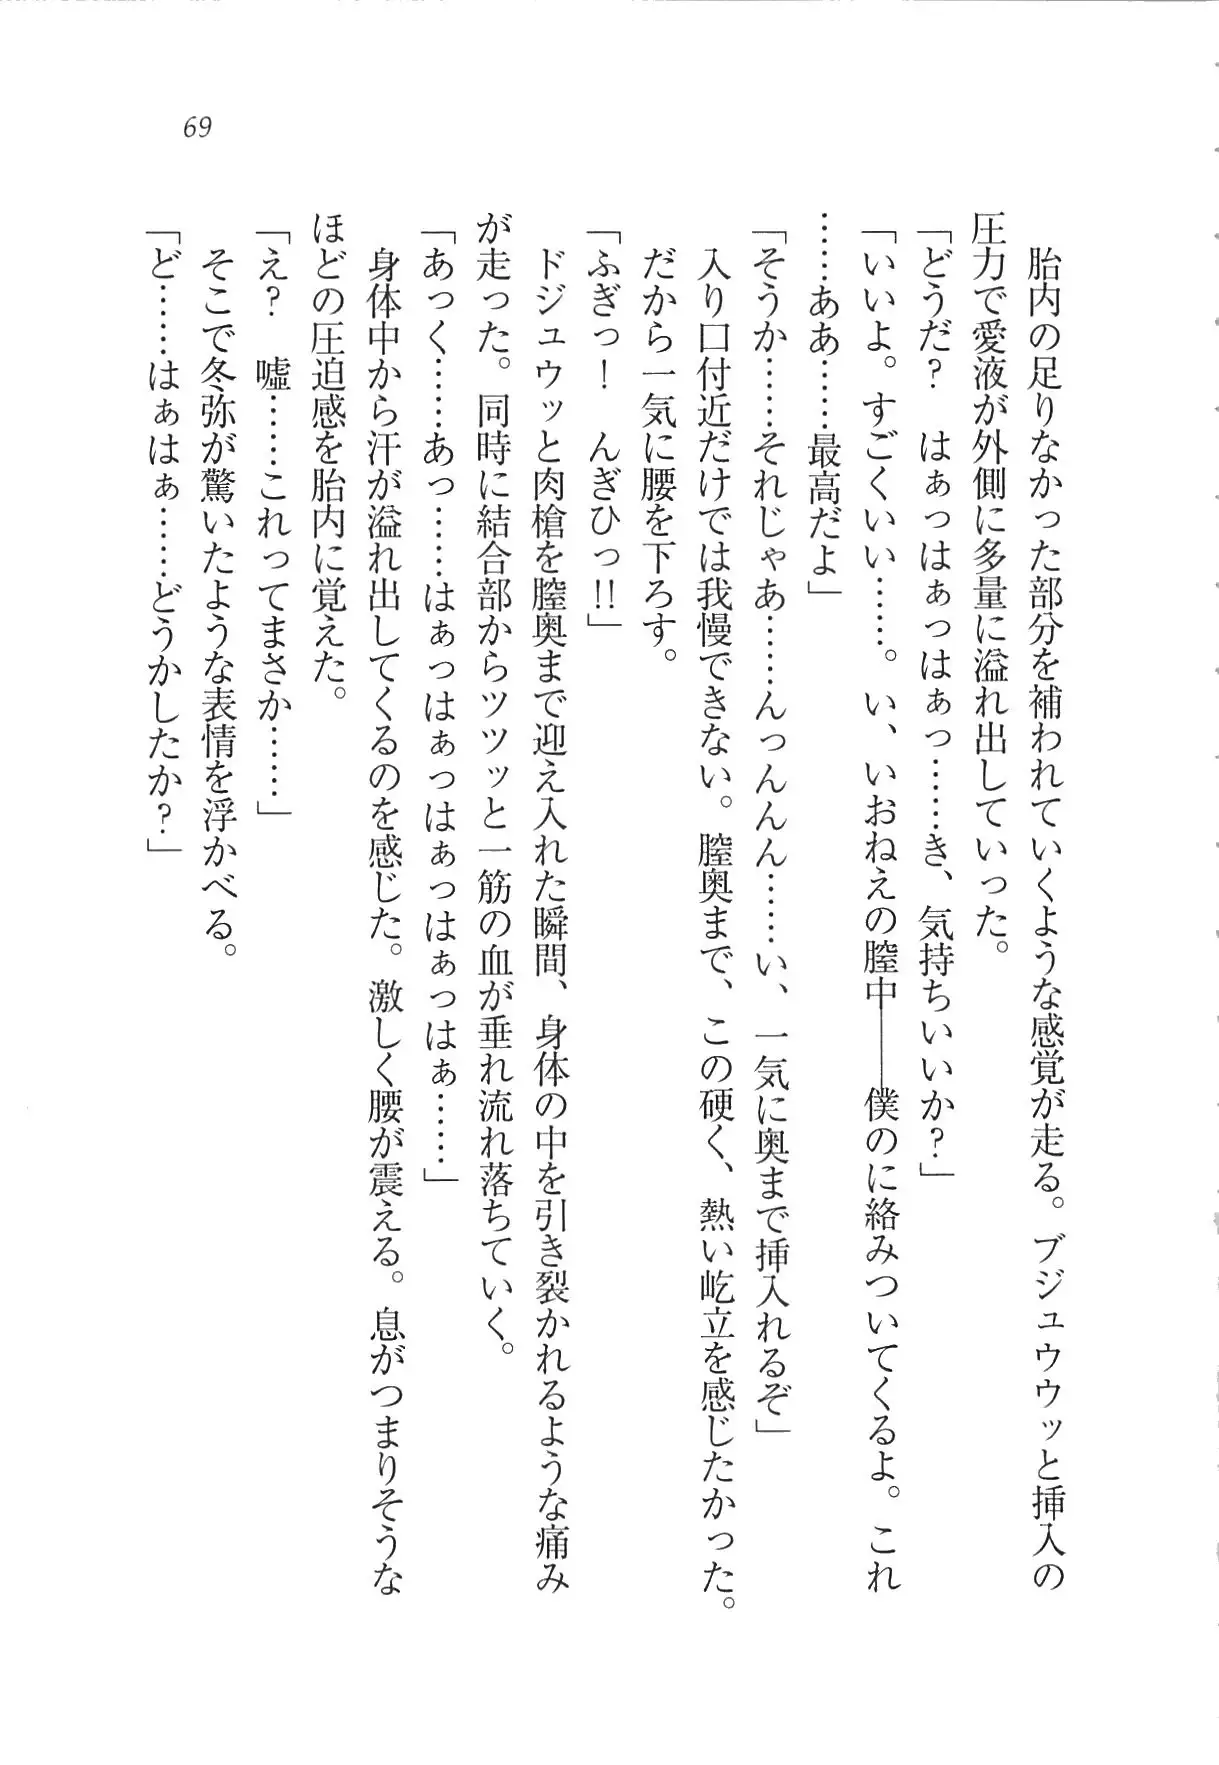 69
胎内の足りなかった部分を補われていくような感覚が走る。ブジュウウッと挿入の
圧力で愛液が外側に多量に溢れ出していった。
「どうだ？　はぁっはぁっはぁっ……き、気持ちいいか？」
「いいよ。すごくいい……。い、いおねえの膣中――僕のに絡みついてくるよ。これ
……ああ……最高だよ」
「そうか……それじゃあ……んっんんん……い、一気に奥まで挿入れるぞ」
入り口付近だけでは我慢できない。膣奥まで、この硬く、熱い屹立を感じたかった。
だから一気に腰を下ろす。
「ふぎっ！　んぎひっ!!」
ドジュウッと肉槍を膣奥まで迎え入れた瞬間、身体の中を引き裂かれるような痛み
が走った。同時に結合部からツツッと一筋の血が垂れ流れ落ちていく。
「あっく……あっ……はぁっはぁっはぁっはぁっはぁ……」
身体中から汗が溢れ出してくるのを感じた。激しく腰が震える。息がつまりそうな
ほどの圧迫感を胎内に覚えた。
「え？　嘘……これってまさか……」
そこで冬弥が驚いたような表情を浮かべる。
「ど……はぁはぁ……どうかしたか？」